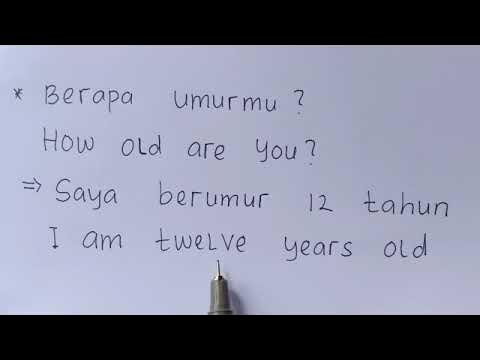 * Berapa umurmu?
How old are you?
⇒ Saya berumur 12 tahun
I am twelve years old